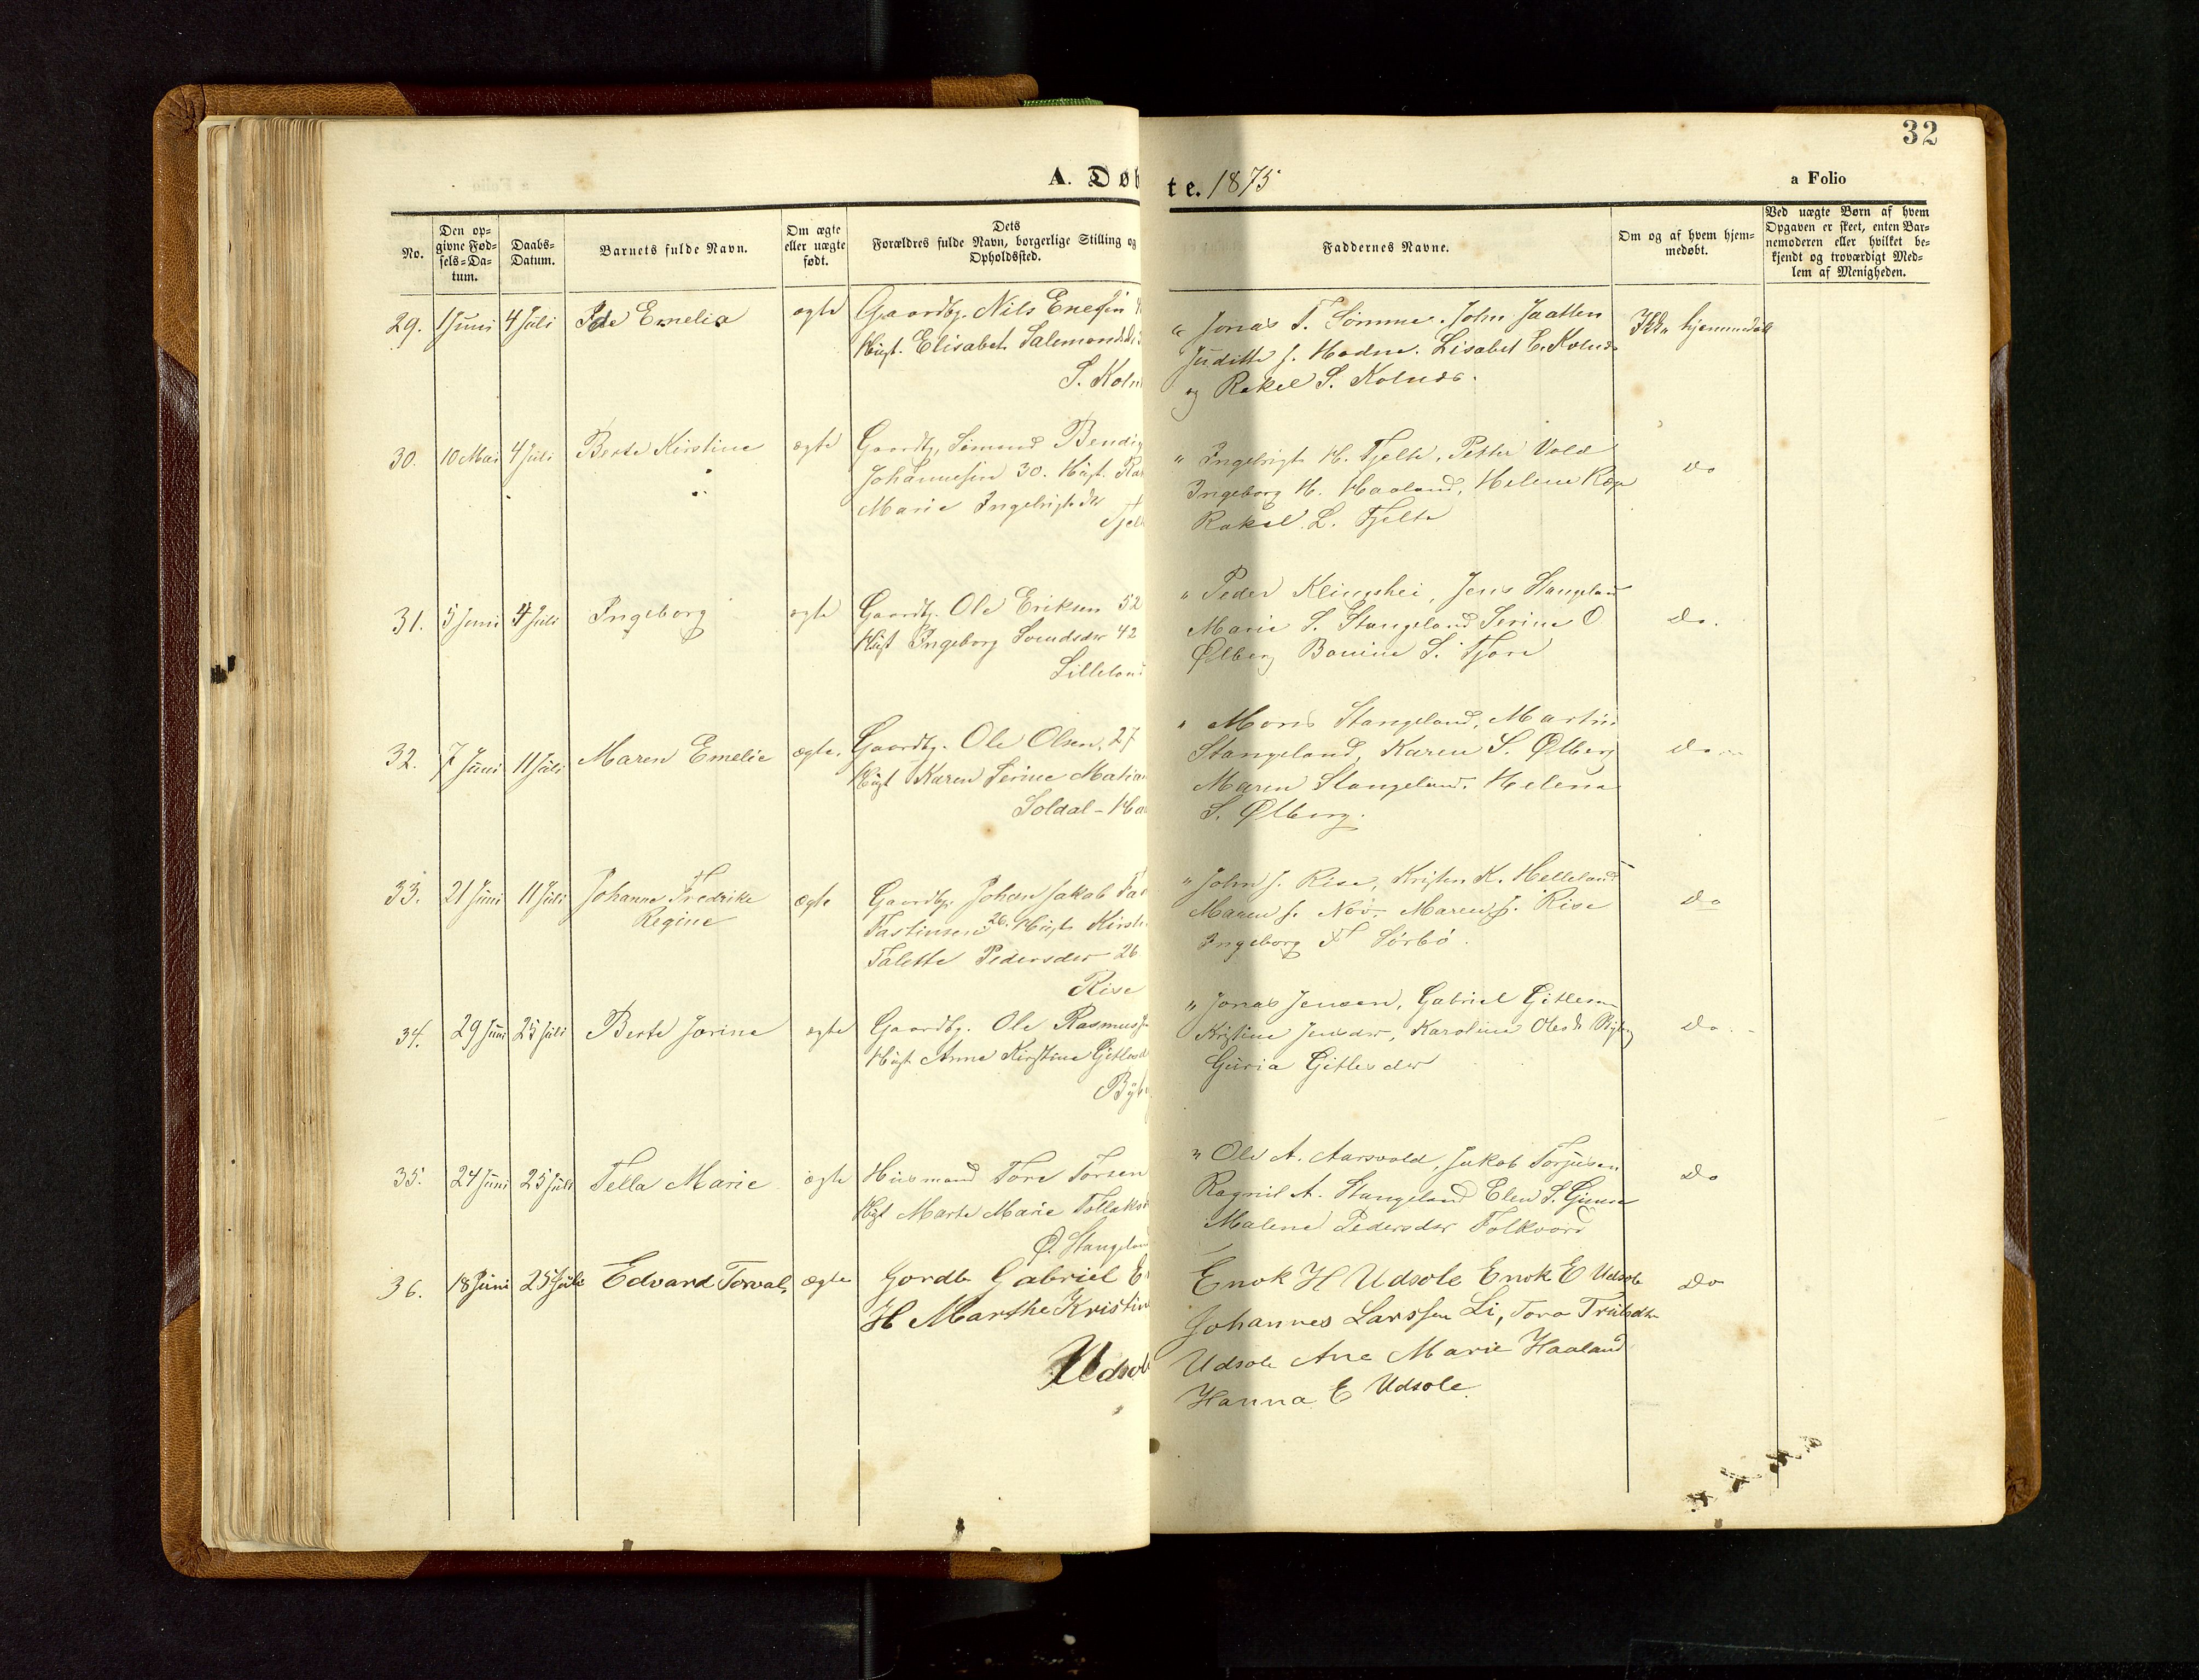 32
A. Døb
te. 1875
a Folio
No.
Den op-
givne Fød-
sels-Da-
tum.
Daabs-
Datum.
Barnets fulde Navn.
Om ægte
eller uægte
født.
Dets
Forældres fulde Navn, borgerlige Stilling og
Opholdssted.
Faddernes Navne.
Om og af hvem hjem-
medøbt.
Ved uægte Børn af hvem
Opgaven er skeet, enten Bar-
nemoderen eller hvilket be-
kjendt og troværdigt Med-
lem af Menigheden.
29. 1 Juni 4 Juli Ide Emelia ægte Gaardbr. Nils Enessen
Hust. Elisabet Salemonsd.
S. Koln
" Jonas T. Sømme. John Jaatten
Juditte J. Hodne. Lisabet E. Kolnes
og Rakel S. Kolnes.
Ikke hjemmedøbt
30. 10 Mai 4 Juli Berte Kirstine ægte Gaardbr. Simund Bendig
Johannesen 30. Hust.
Marie Ingebrigtsdtr
Tjelt
" Ingebrigt H. Tjelte, Petter Vold
Ingeborg H. Haaland, Helene Rege
Rakel L. Tjelte
do
31. 5 Juni 4 Juli Ingeborg ægte Gaardbr. Ole Eriksen 52
Hust Ingeborg Svendsdtr 42
Lilleland
" Peder Klingshei, Jens Stangeland
Marie S. Stangeland Serine O
Ølberg Bowine S. Tjore
do.
32. 7 Juni 11 Juli Maren Emelie ægte. Gaardbr. Ole Olsen, 27
Hust Karen Serine Matia
Soldal - Ha
" Mons Stangeland, Martin
Stangeland, Karen S. Ølberg
Maren Stangeland. Helena
S. Ølberg.
do
33. 21 Juni 11 Juli Johanne Fredrike
Regine
ægte Gaardbr. Johan Jakob
Tastinsen 26. Hust. Kirsti
Talette Pedersdtr 26
Rise
" John J. Rise, Kristen K. Helleland
Maren J. Nøv. Maren J. Rise
Ingeborg T Sørbø.
do
34. 29 Juni 25 Juli Berte Jorine ægte Gaardbr. Ole Rasmuss
Hust Anne Kirstine Gitlesd
Byb
" Jonas Jensen, Gabriel Gitlesen
Kristine Jensdtr, Karoline Olesdt
Guria Gitlesdtr
do.
35. 24 Juni 25 Juli Tella Marie ægte Husmand Tore Torsen
Hust Marte Marie Tollaks
Ø. Stangeland
" Ole A. Aarsvold, Jakob Torjusen
Ragnil A. Stangeland Elen S. Gimre
Malene Pedersdtr Folkvord
do
36. 18 Juni 25 Juli Edvard Torval, ægte Gordb Gabriel E
H Marthe Kristin
Udsol
Enok H Udsole Enok E Udsole
Johannes Larssen Li, Tora Trulsdtr
Udsole Ane Marie Haaland
Hanna E Udsole.
do